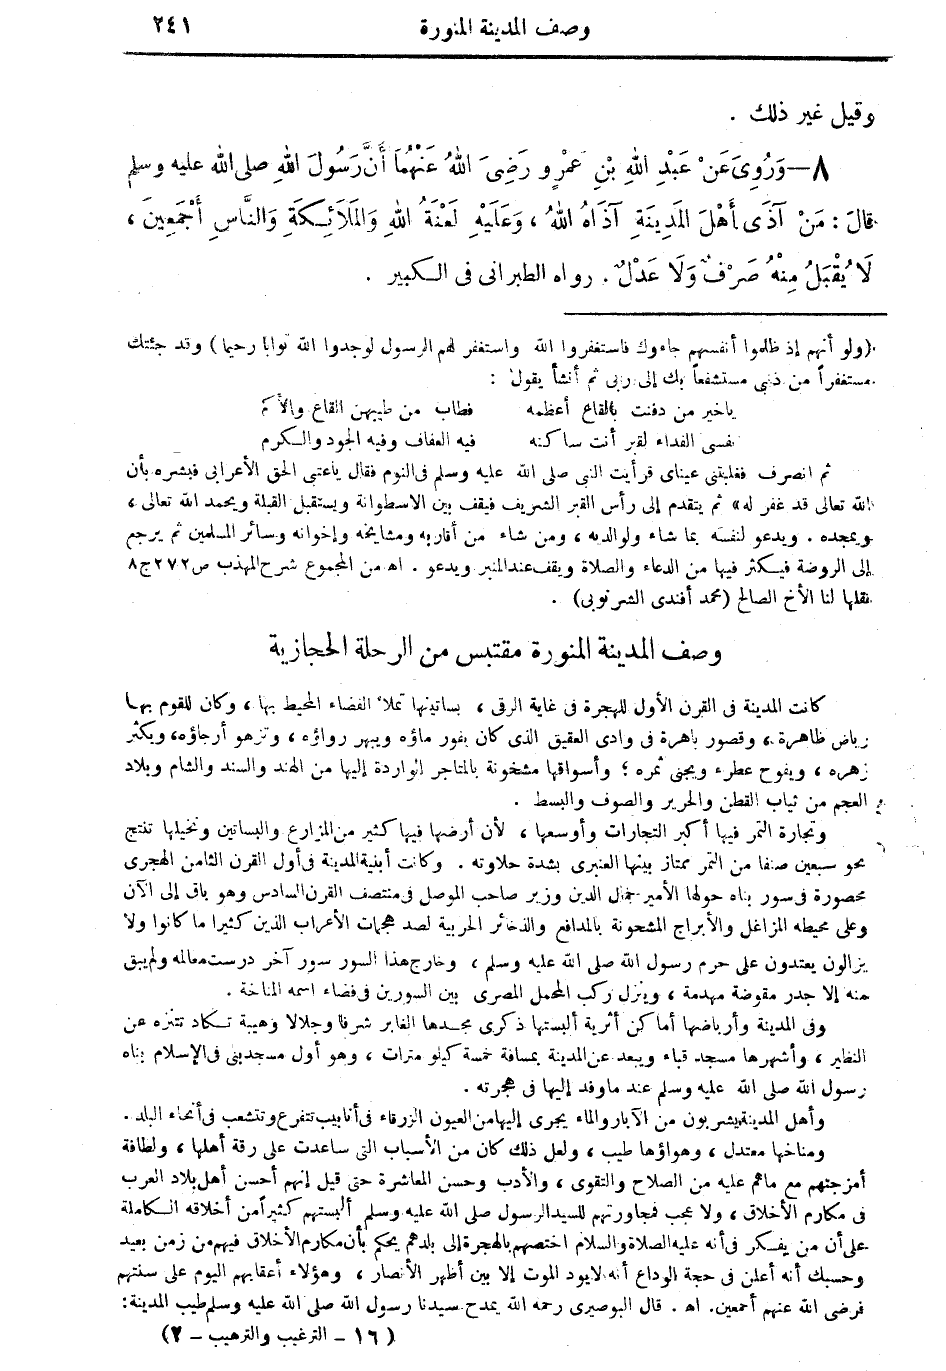 وصف المدينة المنورة ٢٤١
وقيل غير ذلك .
٨—وَرُوِىَ عَنْ عَبْدِ اللهِ بْنِ عَمْرٍو رَضِىَ اللهُ عَنْهُمَا أَنَّ رَسُولَ اللهِ صلى الله عليه وسلم
قالَ : مَنْ آذَى أَهْلَ المَدِينَةِ آذَاهُ اللهُ ، وَعَلَيْهِ لَعْنَةُ اللهِ وَالمَلَائِكَةِ وَالنَّاسِ أَجْمَعِينَ ،
لَا يُقْبَلُ مِنْهُ صَرْفٌ وَلَا عَدْلٌ . رواه الطبرانى فى الكبير .
(ولو أنهم إذ ظلموا أنفسهم جاءوك فاستغفروا الله واستغفر لهم الرسول لوجدوا الله توابا رحيما) وقد جئتك
مستغفراً من ذنبى مستشفعاً بك إلى ربى ثم أنشأ يقول :
ياخير من دفنت بالقاع أعظمه فطاب من طيبهن القاع والأكم
نفسى الفداء لقبر أنت ساكنه فيه العفاف وفيه الجود والكرم
ثم انصرف فغلبتنى عيناى فرأيت النبى صلى الله عليه وسلم فى النوم فقال ياعتبى الحق الأعرابى فبشره بأن
الله تعالى قد غفر له» ثم يتقدم إلى رأس القبر الشريف فيقف بين الاسطوانة ويستقبل القبلة ويحمد الله تعالى ،
ويمجده . ويدعو لنفسه بما شاء ولوالديه ، ومن شاء من أقاربه ومشايخه وإخوانه وسائر المسلمين ثم يرجع
إلى الروضة فيكثر فيها من الدعاء والصلاة ويقف عند المنبر ويدعو . اه من المجموع شرح المهذب ص ٢٧٢ ج ٨
نقلها لنا الأخ الصالح (محمد أفندى الشرنوبى) .
وصف المدينة المنورة مقتبس من الرحلة الحجازية
كانت المدينة فى القرن الأول للهجرة فى غاية الرقى ، بساتينها تملأ الفضاء المحيط بها ، وكان للقوم بها
رياض ظاهرة ، وقصور باهرة فى وادى العقيق الذى كان يفور ماؤه ويبهر رواؤه ، وتزهو أرجاؤه، ويكثر
زهره ، ويفوح عطره ويجنى ثمره ؛ وأسواقها مشحونة بالمتاجر الواردة إليها من الهند والسند والشام وبلاد
العجم من ثياب القطن والحرير والصوف والبسط .
وتجارة التمر فيها أكبر التجارات وأوسعها ، لأن أرضها فيها كثير من المزارع والبساتين ونخيلها تنتج
نحو سبعين صنفا من التمر ممتاز بينها العنبرى بشدة حلاوته . وكانت أبنية المدينة فى أول القرن الثامن الهجرى
محصورة فى سور بناه حولها الأمير جمال الدين وزير صاحب الموصل فى منتصف القرن السادس وهو باق إلى الآن
وعلى محيطه المزاغل والأبراج المشحونة بالمدافع والذخائر الحربية لصد هجمات الأعراب الذين كثيرا ما كانوا ولا
يزالون يعتدون على حرم رسول الله صلى الله عليه وسلم ، وخارج هذا السور سور آخر درست معالمه ولم يبق
منه إلا جدر مقوضة مهدمة ، وينزل ركب المحمل المصرى بين السورين فى فضاء اسمه المناخة .
وفى المدينة وأرباضها أماكن أثرية ألبستها ذكرى مجدها الغابر شرفا وجلالا وهيبة تكاد تتنزه عن
النظير ، وأشهرها مسجد قباء ويبعد عن المدينة بمسافة خمسة كيلو مترات ، وهو أول مسجد بنى فى الإسلام بناه
رسول الله صلى الله عليه وسلم عند ماوفد إليها فى هجرته .
وأهل المدينة يشربون من الآبار والماء يجرى إليها من العيون الزرقاء فى أنابيب تتفرع وتتشعب فى أنحاء البلد .
ومناخها معتدل ، وهواؤها طيب ، ولعل ذلك كان من الأسباب التى ساعدت على رقة أهلها ، ولطافة
أمزجتهم مع ماهم عليه من الصلاح والتقوى ، والأدب وحسن المعاشرة حتى قيل إنهم أحسن أهل بلاد العرب
فى مكارم الأخلاق ، ولا عجب فمجاورتهم للسيد الرسول صلى الله عليه وسلم ألبستهم كثيراً من أخلاقه الكاملة
على أن من يفكر فى أنه عليه الصلاة والسلام اختصهم بالهجرة إلى بلدهم يحكم بأن مكارم الأخلاق فيهم من زمن بعيد
وحسبك أنه أعلن فى حجة الوداع أنه لايود الموت إلا بين أظهر الأنصار ، وهؤلاء أعقابهم اليوم على سنتهم
فرضى الله عنهم أجمعين. اه . قال البوصيرى رحمه الله يمدح سيدنا رسول الله صلى الله عليه وسلم طيب المدينة:
(١٦ – الترغيب والترهيب – ٢)